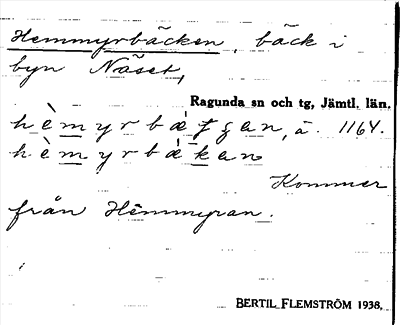 Hemmyrbäcken, bäck i
byn Näset,
Ragunda sn och tg, Jämtl. län.
hèmyrbäʃʃen, ä. 1164.
hèmyrbäken
Kommer
från Hemmyran.
BERTIL FLEMSTRÖM 1938.